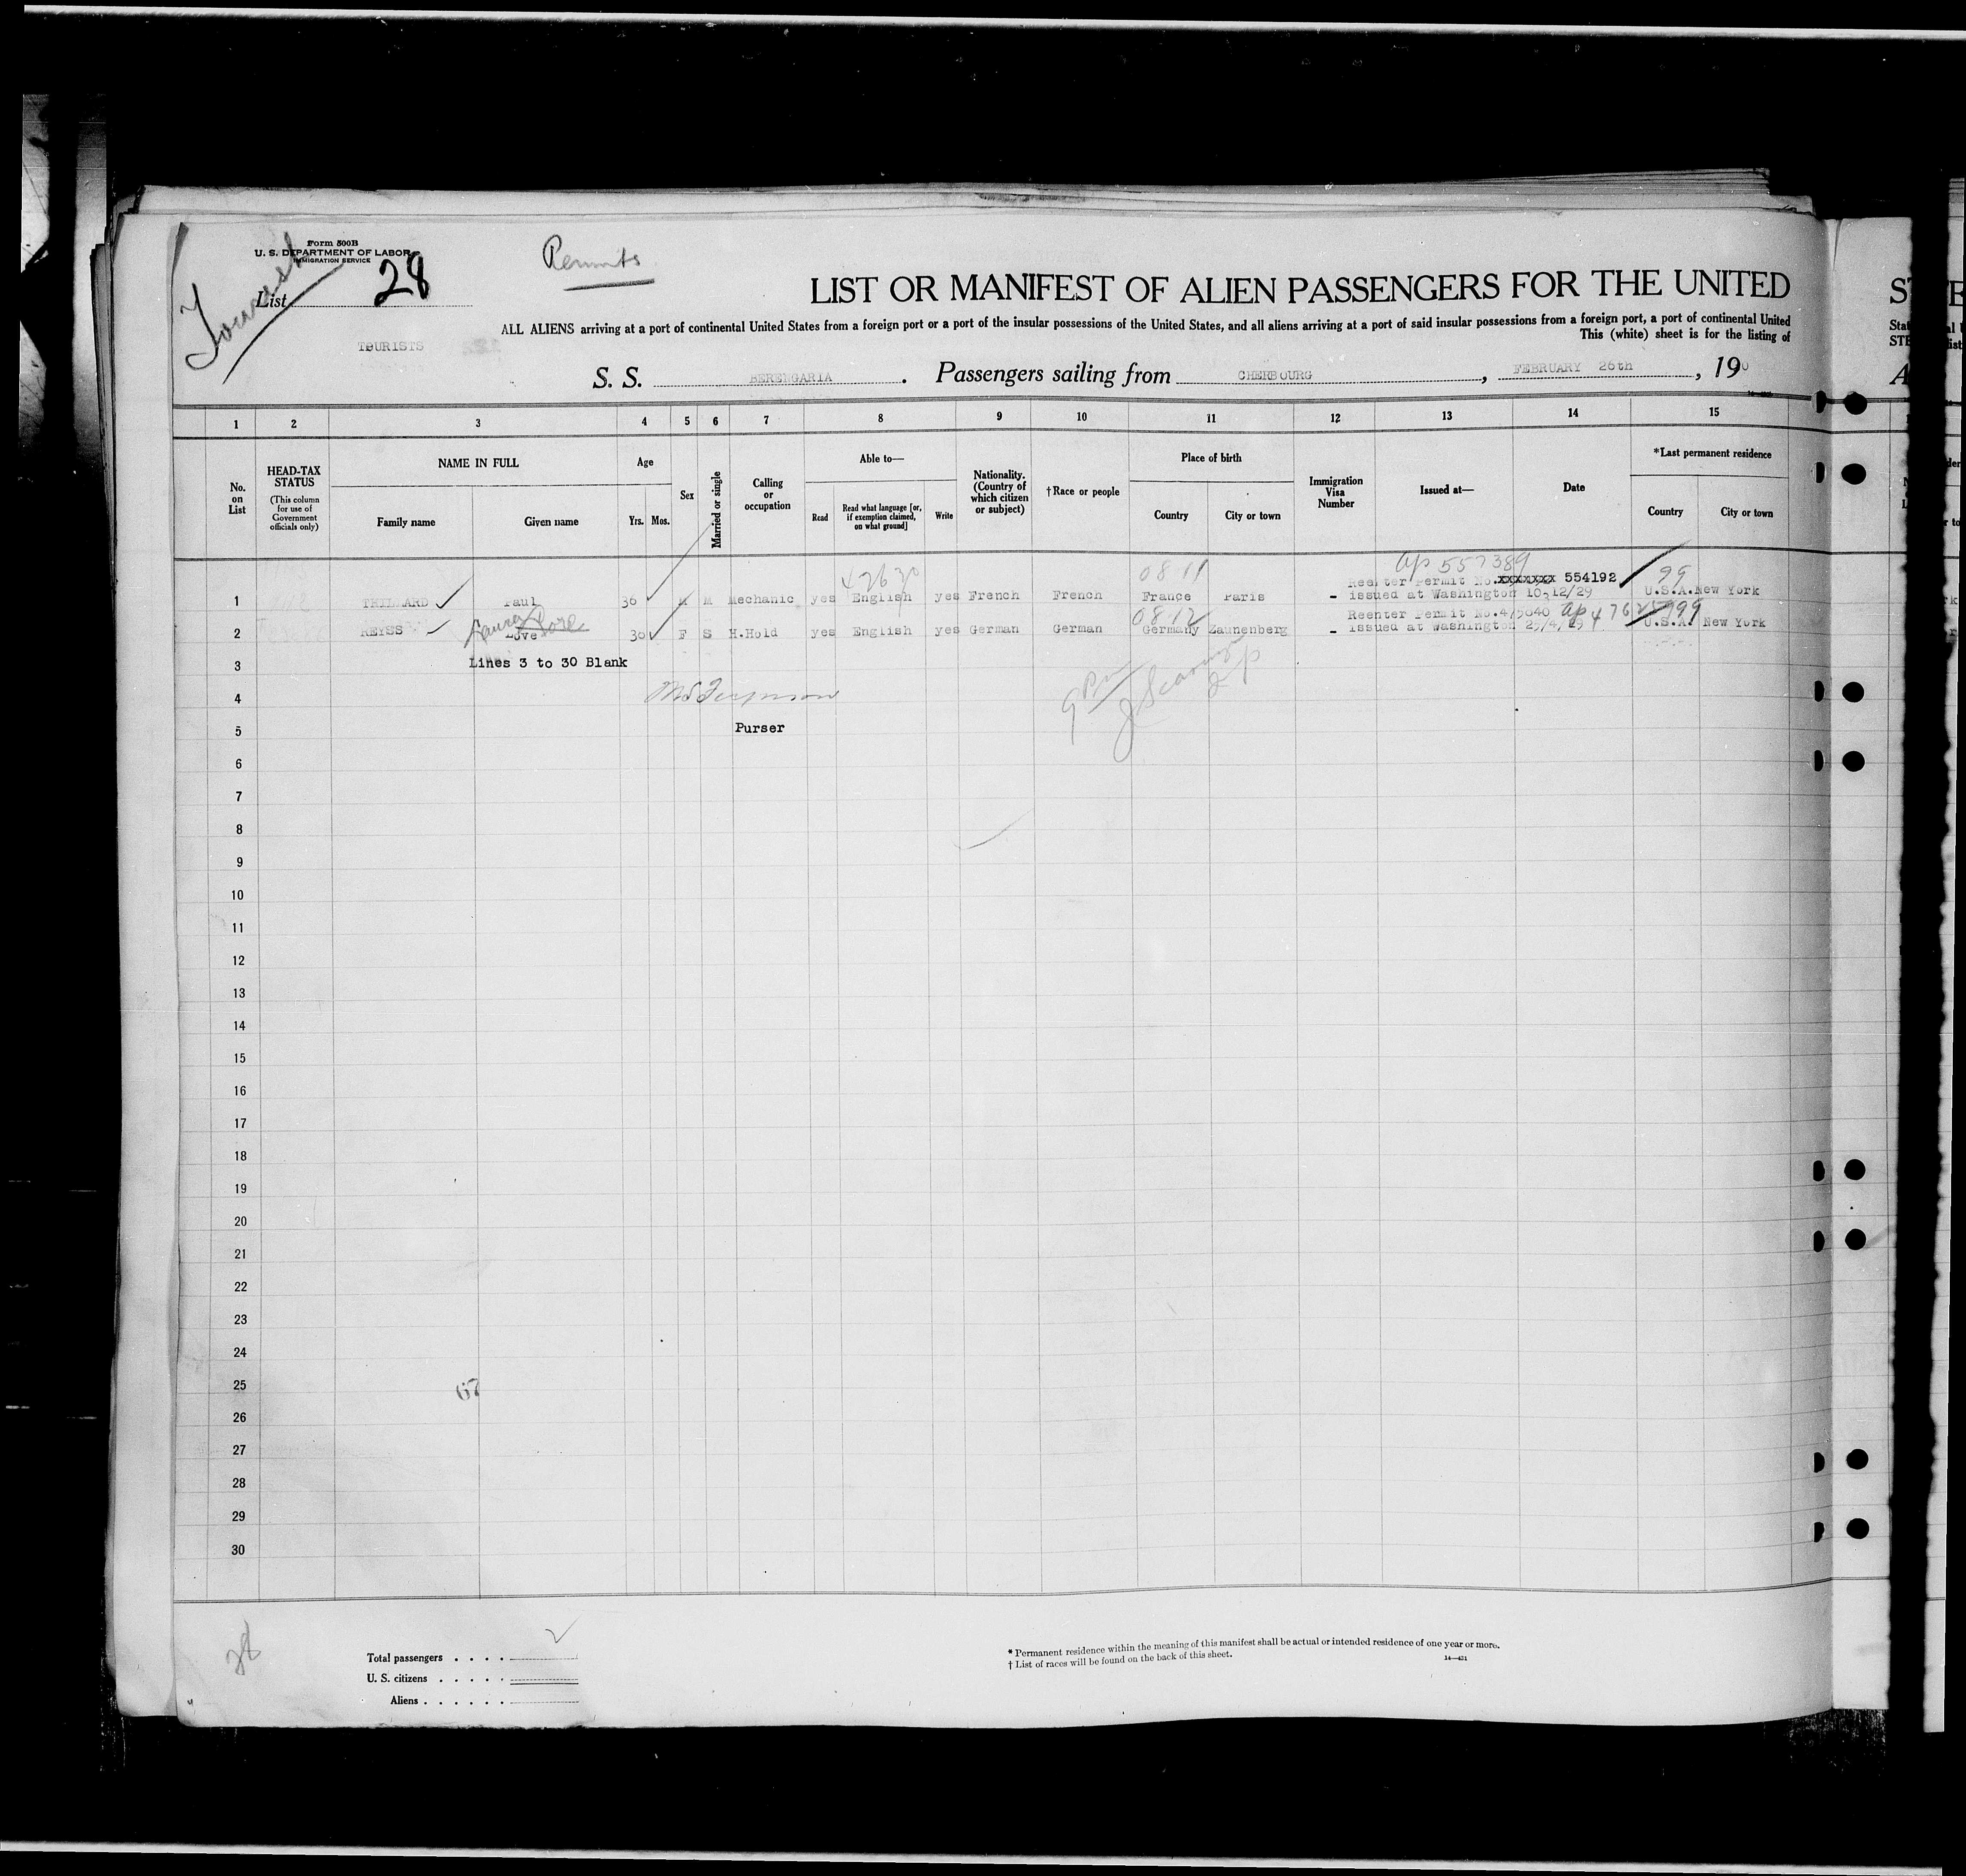 Form 500B
U. S. DEPARTMENT OF LABOR
IMMIGRATION SERVICE
Tourist
List 28
Permits
LIST OR MANIFEST OF ALIEN PASSENGERS FOR THE UNITED
ALL ALIENS arriving at a port of continental United States from a foreign port or a port of the insular possessions of the United States, and all aliens arriving at a port of said insular possessions from a foreign port, a port of continental United
This (white) sheet is for the listing of
TOURISTS
S. S. BERENGARIA. Passengers sailing from CHERBOURG, FEBRUARY 26th, 19
1 2 3 4 5 6 7 8 9 10 11 12 13 14 15
No. on List
HEAD-TAX STATUS (This column for use of Government officials only)
NAME IN FULL
Family name Given name
Age
Yrs. Mos.
Sex
Married or single
Calling or occupation
Able to—
Read
Read what language [or, if exemption claimed, on what ground]
Write
Nationality. (Country of which citizen or subject)
†Race or people
Place of birth
Country City or town
Immigration Visa Number
Issued at—
Date
*Last permanent residence
Country City or town
ap 557389
42630 0811 Reenter Permit No. xxxxxxx 554192 99
1 Paul 36 M M Mechanic yes English yes French French France Paris - issued at Washington 10-12/29 U.S.A. New York
Laura 0812 Reenter Permit No. ap 99
2 REYSS Love 30 F S H.Hold yes English yes German German Germany Zaunenberg - issued at Washington U.S.A. New York
3 Lines 3 to 30 Blank
4
5 Purser
6
7
8
9
10
11
12
13
14
15
16
17
18
19
20
21
22
23
24
25
26
27
28
29
30
28
Total passengers
U. S. citizens
Aliens
* Permanent residence within the meaning of this manifest shall be actual or intended residence of one year or more.
† List of races will be found on the back of this sheet.
14—431